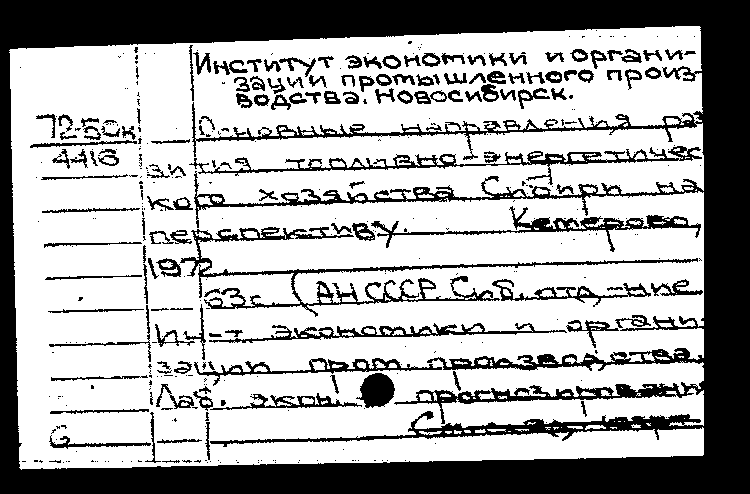 Институт экономики и органи-
зации промышленного произ-
водства. Новосибирск.
72-50к
4416
Основные направления раз
вития топливно-энергетичес
кого хозяйства Сибири на
перспективу. Кемерово,
1972.
63с. (АН СССР. Сиб. отд-ние.
Ин-т экономики и органи
зации пром. производства.
Лаб. экон. прогнозирования
См. след. карт.
G